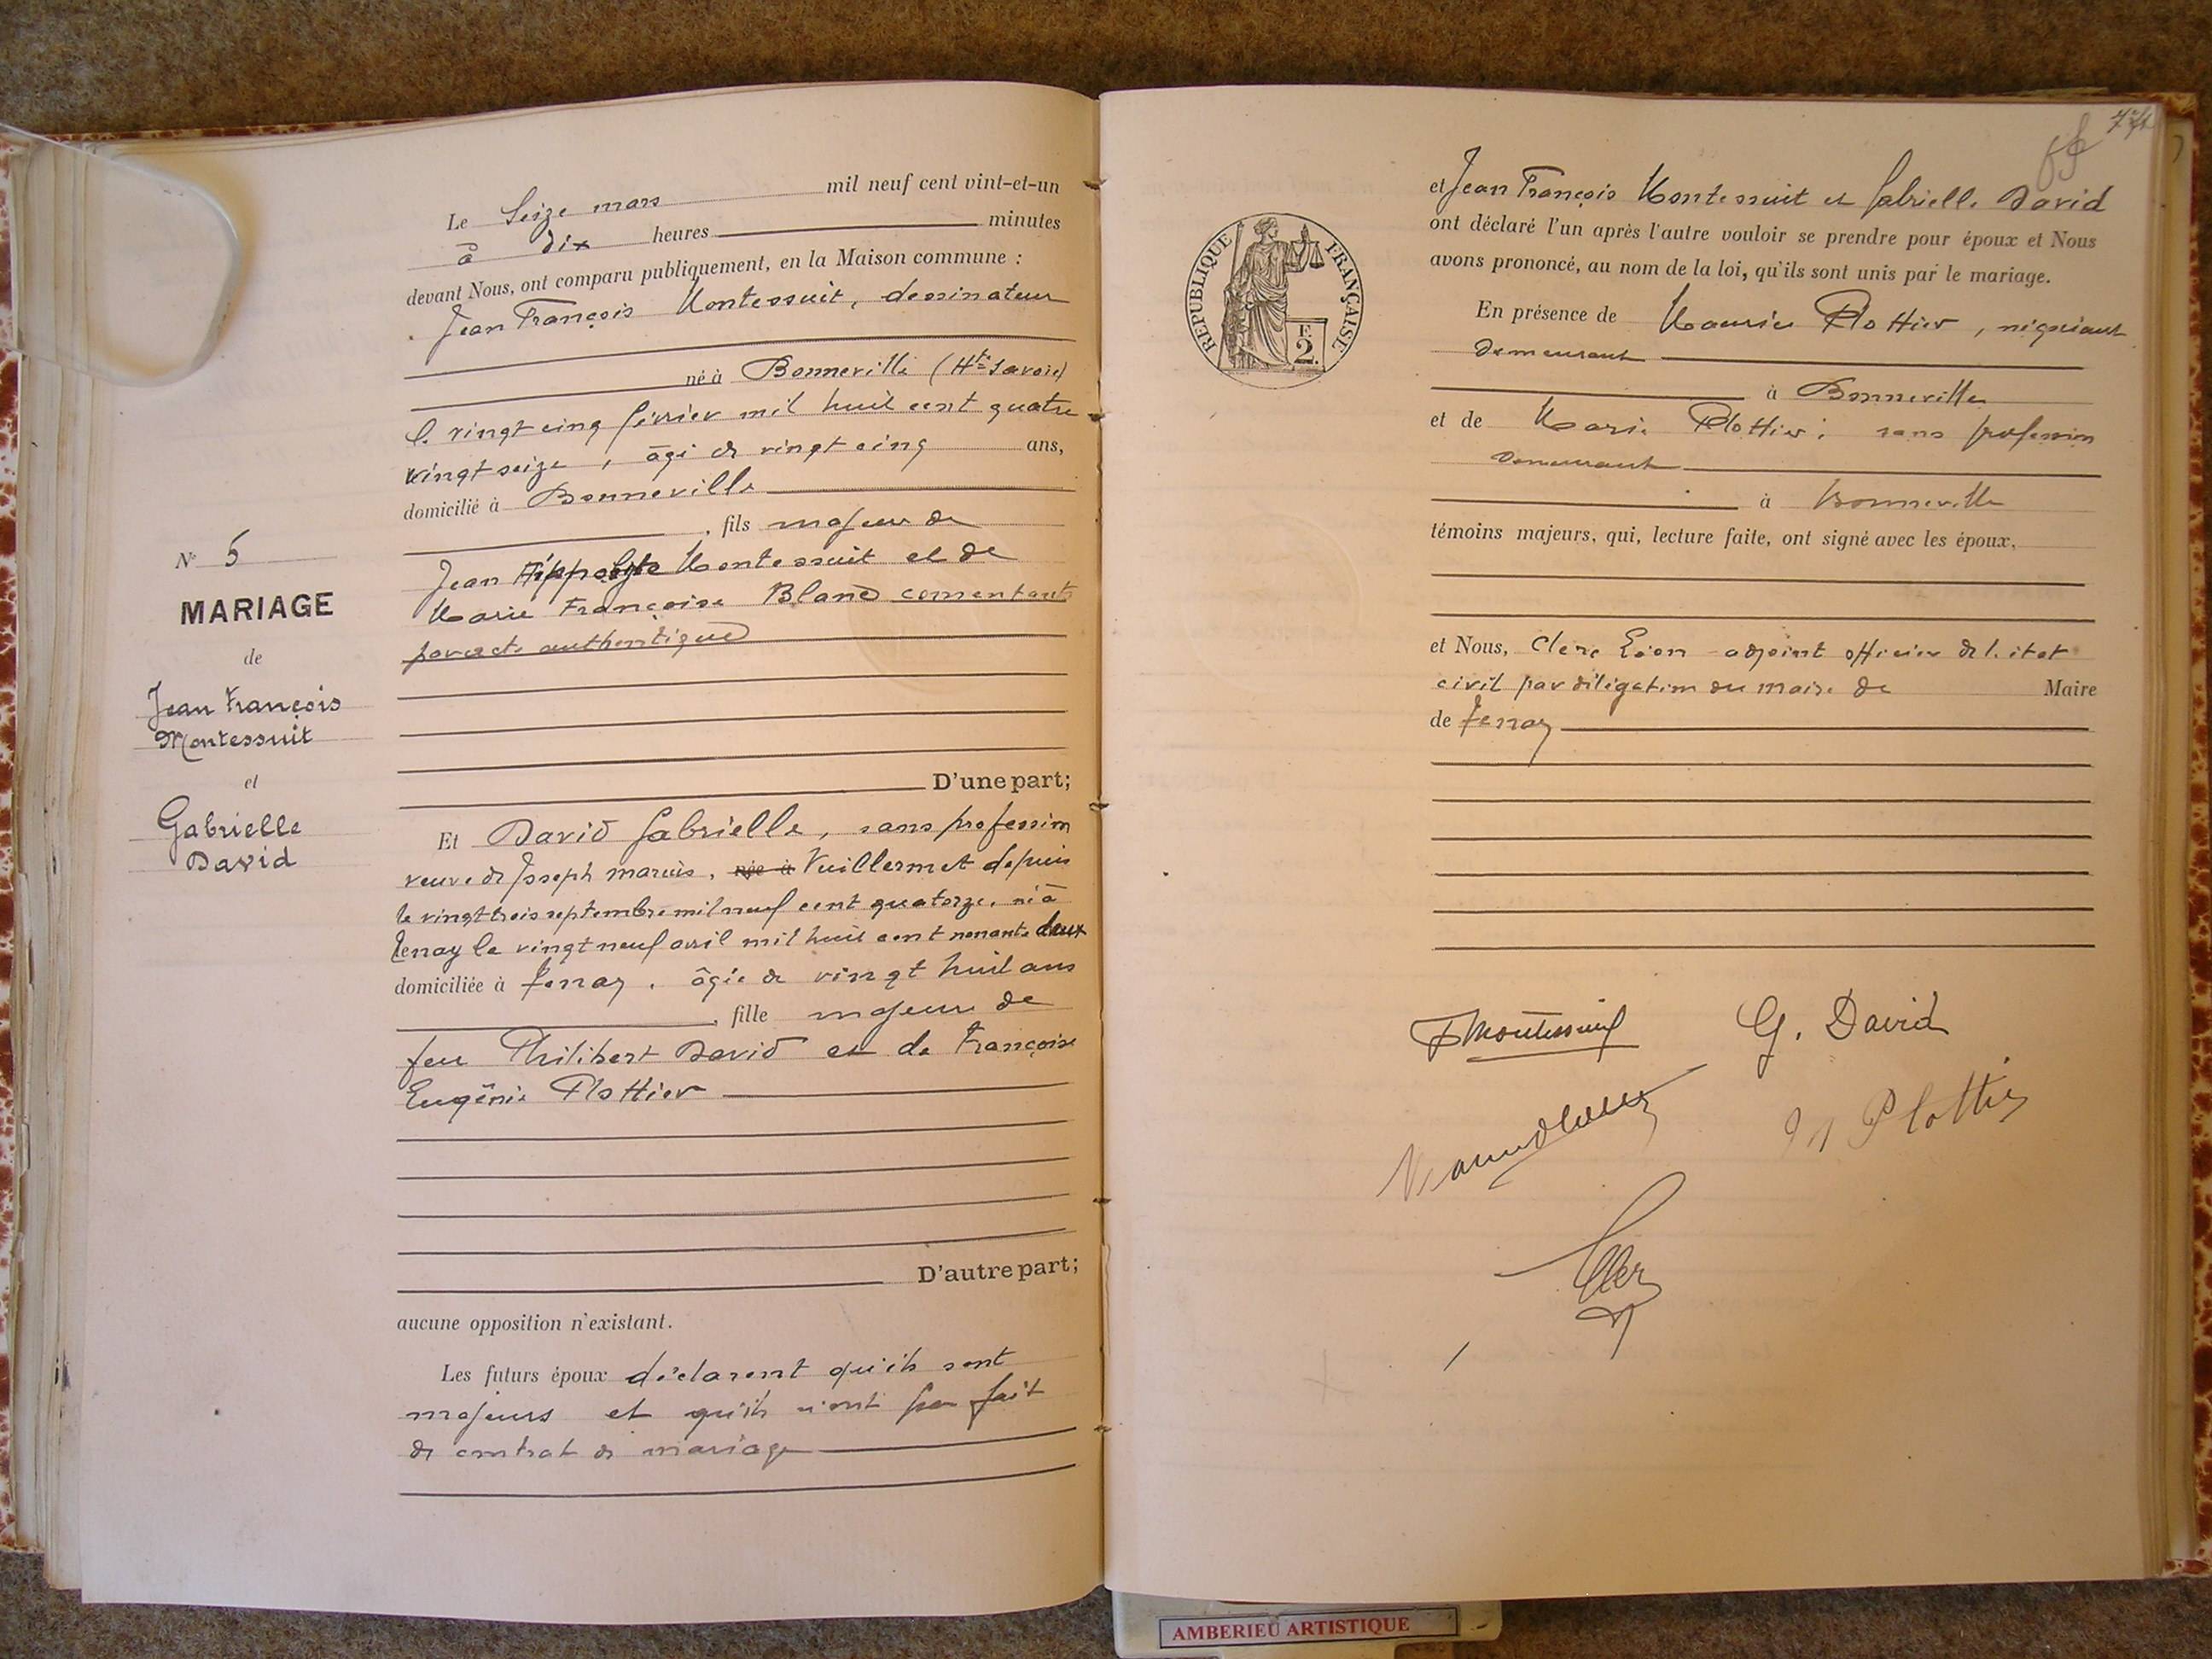 Le Seize mars mil neuf cent vint-et-un
à dix heures minutes
devant Nous, ont comparu publiquement, en la Maison commune :
Jean François Montessuit, dessinateur
né à Bonneville (Hte Savoie)
le vingt cinq février mil huit cent quatre
vingt seize, âgé de vingt cinq ans,
domicilié à Bonneville
, fils majeur de
Jean Hippolyte Montessuit et de
Marie Françoise Blanc consentants
par acte authentique
D'une part;
N° 5
MARIAGE
de
Jean François
Montessuit
et
Gabrielle
David
Et David Gabrielle, sans profession
veuve de Joseph marius, née à Vuillermet depuis
le vingt trois septembre mil neuf cent quatorze, né à
Tenay le vingt neuf avril mil huit cent nonante deux
domiciliée à Tenay, âgée de vingt huit ans
, fille majeur de
feu Philibert David et de Françoise
Eugénie Plottier
D'autre part;
aucune opposition n'existant.
Les futurs époux déclarent qu'ils sont
majeurs et qu'ils n'ont pas fait
de contrat de mariage
et Jean François Montessuit et Gabrielle David
ont déclaré l'un après l'autre vouloir se prendre pour époux et Nous
avons prononcé, au nom de la loi, qu'ils sont unis par le mariage.
REPUBLIQUE FRANÇAISE
E
2.
En présence de Maurice Plottier, négociant
demeurant
à Bonneville
et de Marie Plottier, sans profession
demeurant
à Bonneville
témoins majeurs, qui, lecture faite, ont signé avec les époux,
et Nous, Clerc Léon adjoint officier de l'état
civil par délégation du maire de Maire
de Tenay
Montessuit G. David
M Plottier
Clerc
AMBERIEU ARTISTIQUE